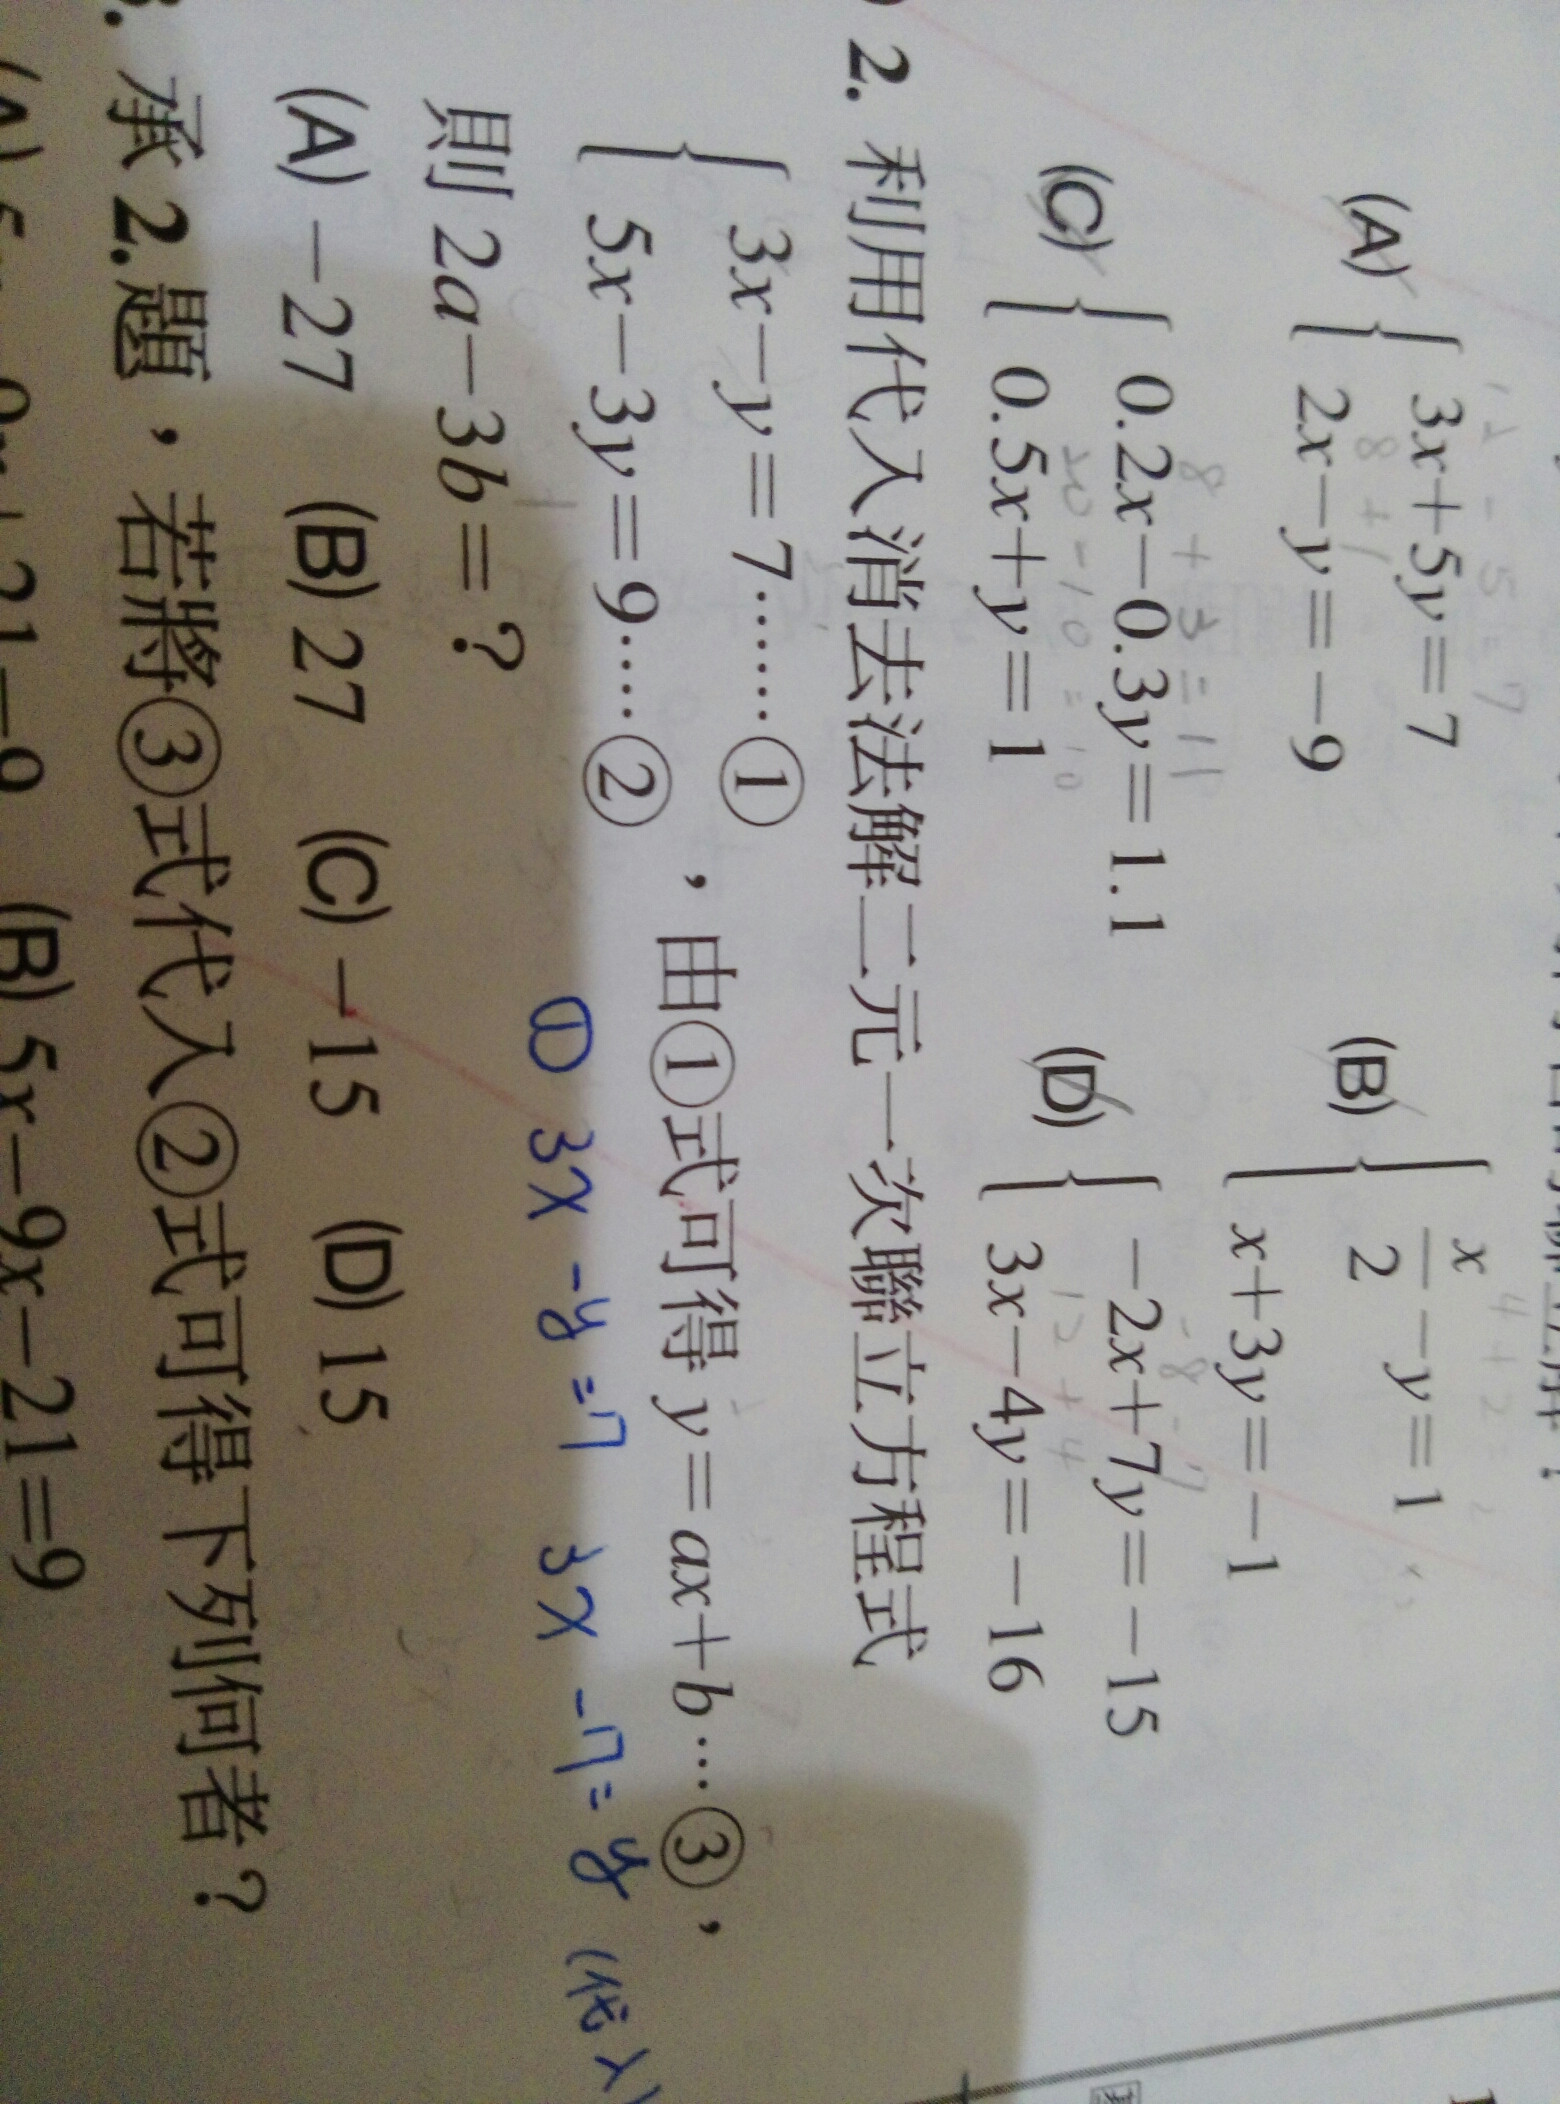 (A) { 3x+5y=7
2x-y=-9
(B) { x/2-y=1
x+3y=-1
(C) { 0.2x-0.3y=1.1
0.5x+y=1
(D) { -2x+7y=-15
3x-4y=-16
2. 利用代入消去法解二元一次聯立方程式
{ 3x-y=7……①
5x-3y=9……②
，由①式可得 y=ax+b…③，
則 2a-3b=？
① 3x-y=7 3x-7=y (代入)
(A) -27 (B) 27 (C) -15 (D) 15
3. 承 2.題，若將③式代入②式可得下列何者？
(B) 5x-9x-21=9